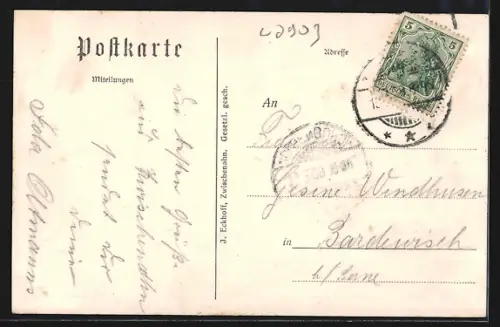 Postkarte
Mitteilungen
Die besten Grüße
aus Zwischenahn
sendet dir
deine
Oltmanns
J. Eckhoff, Zwischenahn. Gesetzl. gesch.
Adresse
5 5
An
Gesine Windhusen
in Bardewisch
b/ Berne